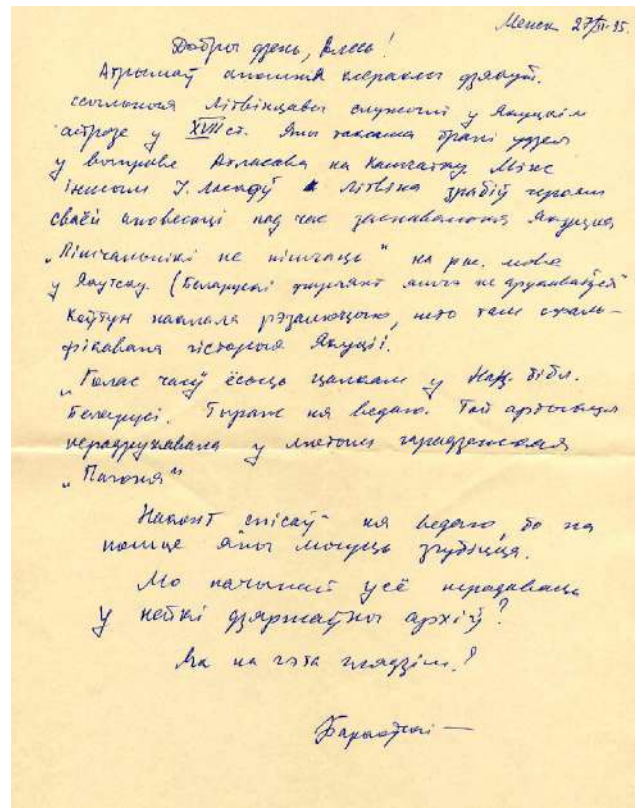 Менск 27/II-95.
Добры дзень, Влесь!
Атрымаў апошнія ксераксы дзякуй.
Літвінцавы служылі у Якуцкім
астрозе у XVII ст. Яны таксама бралі удзел
у выправе Атласава на Камчатку. Між
іншым І. Ласкоў Літвіна зрабіў героям
сваёй аповесьці пад час заснаваньня Якуцка
„Лішчальнікі не на рас. мове
у Якутску. (Беларускі варыянт яшчэ не друкаваўся
Коўтун напісала рэзалюцыю, што там сфаль-
фікавана гісторыя Якуціі.
„Голас часу" ёсьць цалкам у Нац. бібл.
Беларусі. Тыраж ня ведаю. Той артыкул
перадрукавана у лютым гарадзенскай
„Пагоня"
Наконт спісаў ня ведаю, бо на
пошце яны могуць згубіцца.
Мо пачынай усё перадаваць
у нейкі дзяржаўны архіў?
Як на гэта глядзіш?
Бароўскі